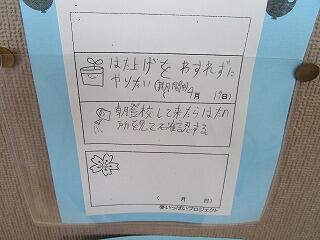 はた上げをわすれずに
やりたい(期間 4月 日)
朝登校して来たらはたの
所を見て確認する。
( 月 日)
夢いっぱいプロジェクト